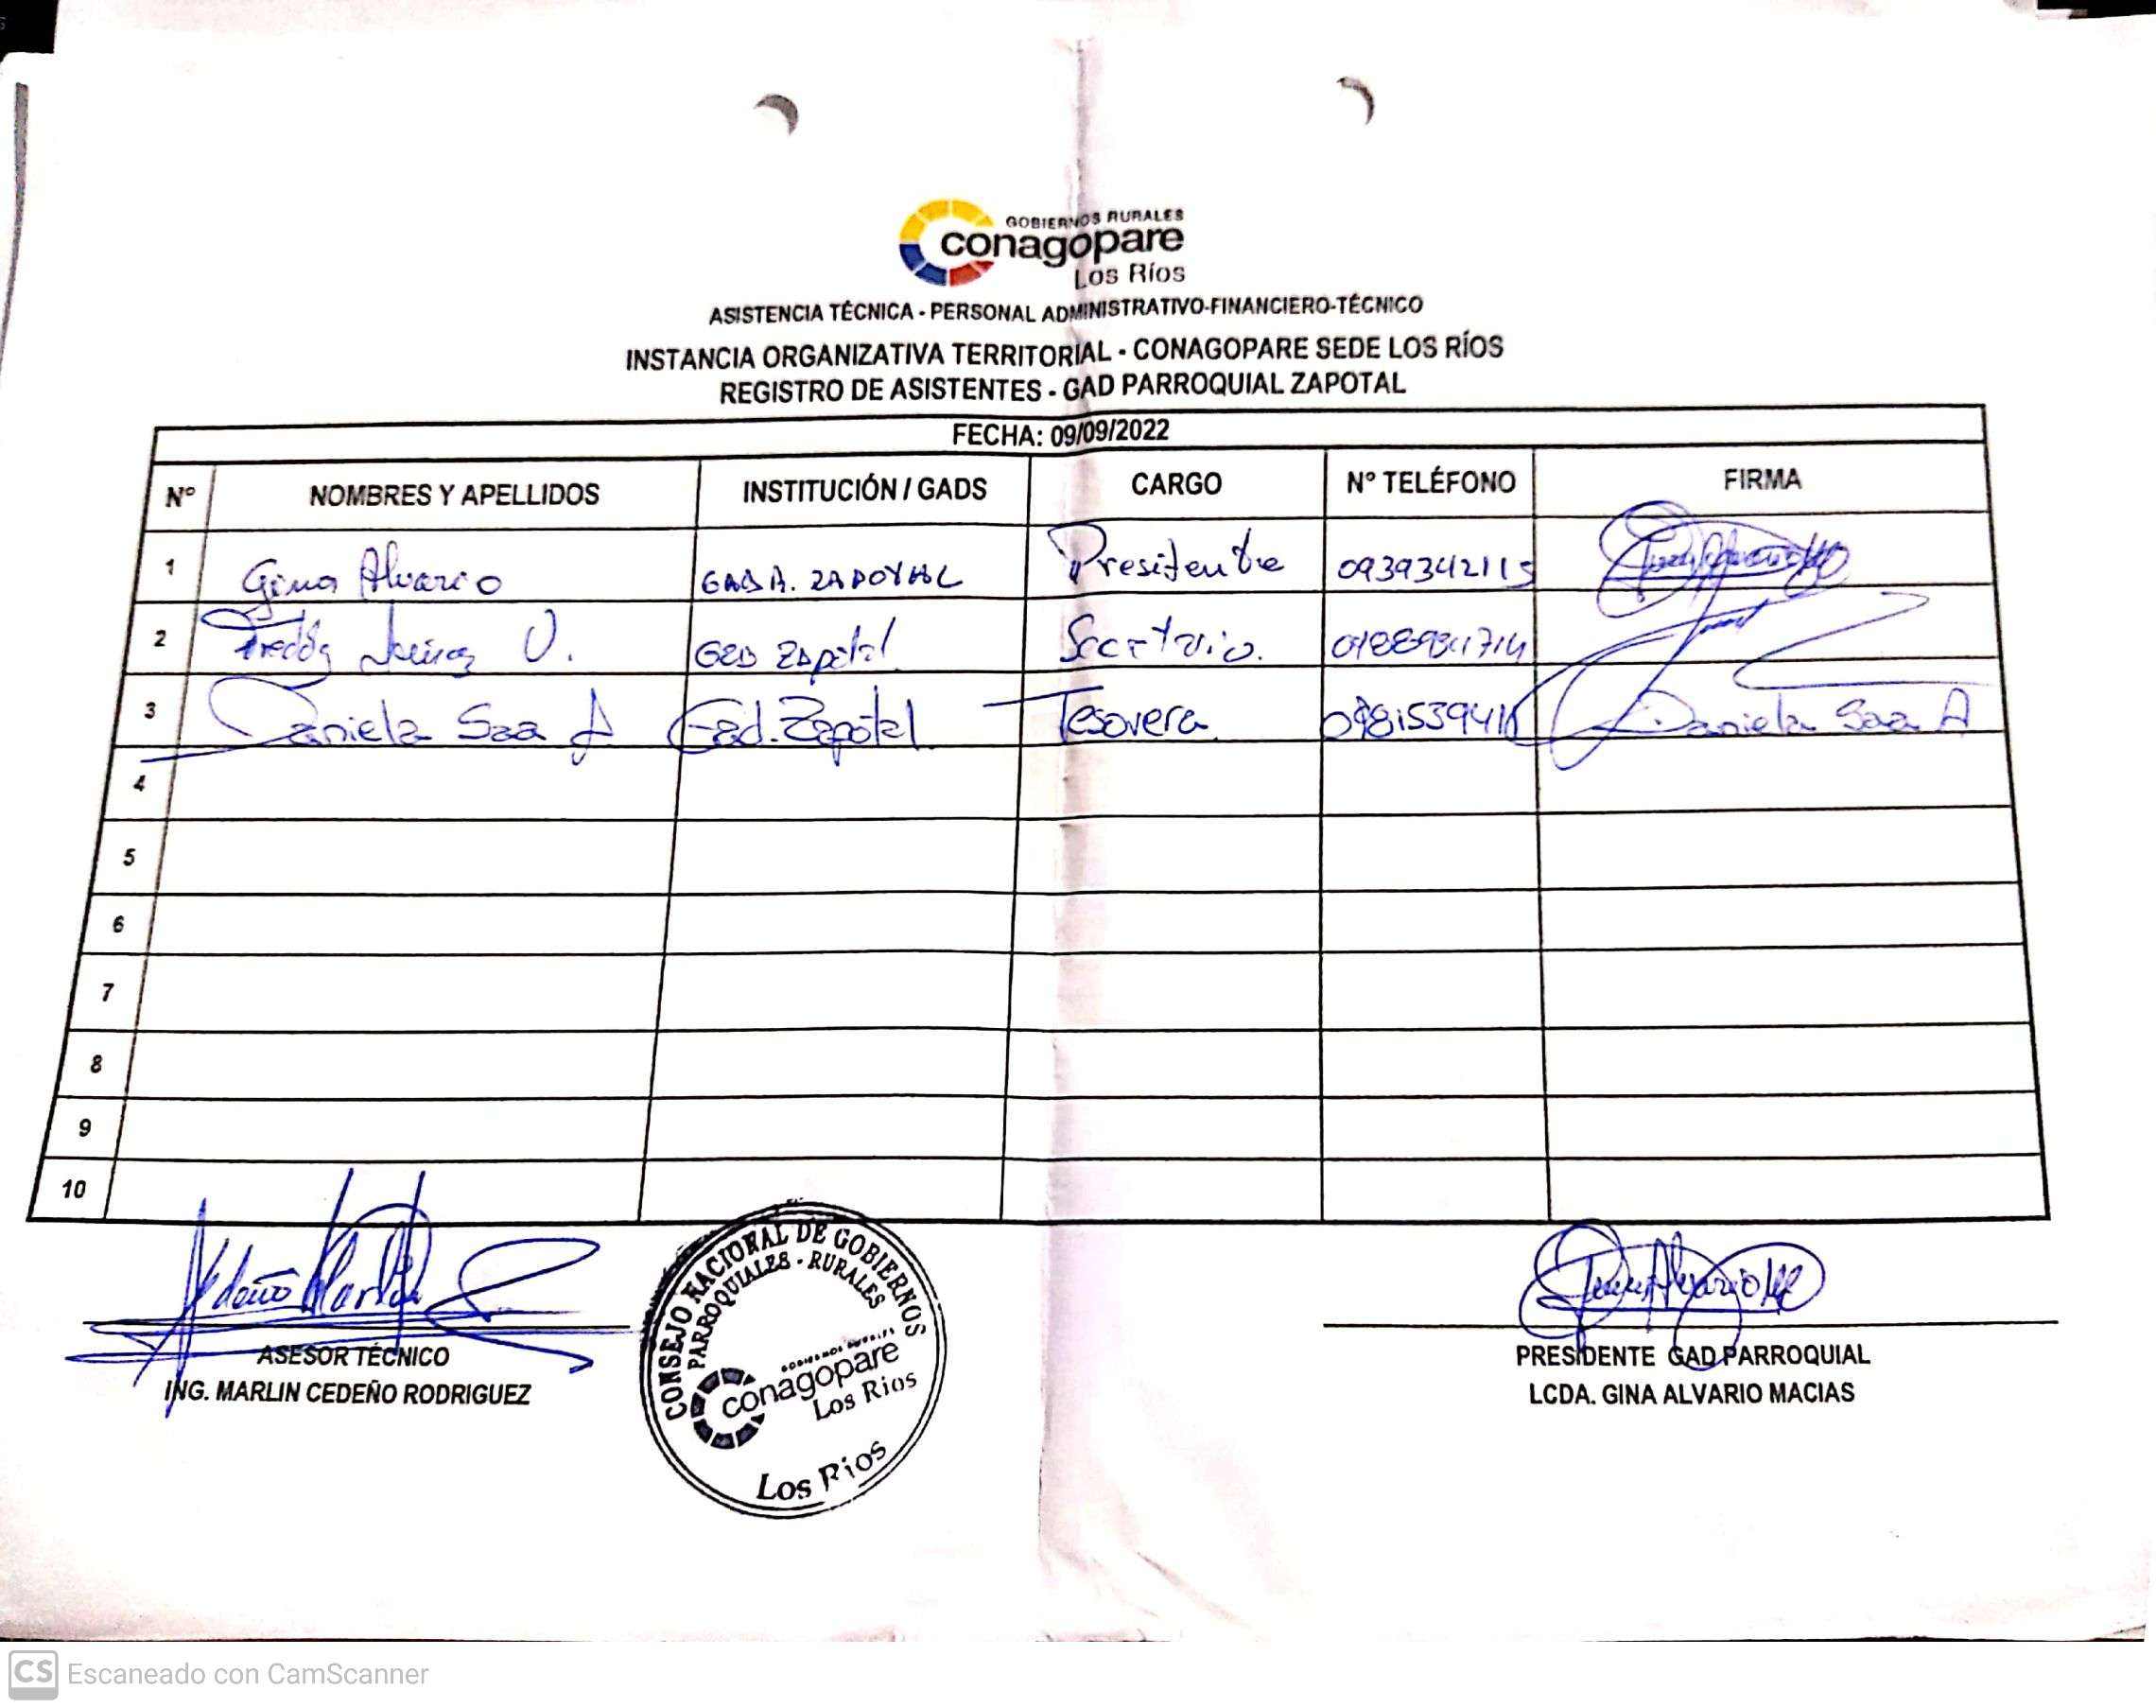 GOBIERNOS RURALES
conagopare
Los Ríos
ASISTENCIA TÉCNICA - PERSONAL ADMINISTRATIVO-FINANCIERO-TÉCNICO
INSTANCIA ORGANIZATIVA TERRITORIAL - CONAGOPARE SEDE LOS RÍOS
REGISTRO DE ASISTENTES - GAD PARROQUIAL ZAPOTAL
FECHA: 09/09/2022
Nº NOMBRES Y APELLIDOS INSTITUCIÓN / GADS CARGO Nº TELÉFONO FIRMA
1 Gina Alvario Presidente 0939342115
2 Freddy V. Zapotal Secretario.
3 Daniela Saa A Gad. Zapotal Tesorera Daniela Saa A
4
5
6
7
8
9
10
ASESOR TÉCNICO
ING. MARLIN CEDEÑO RODRIGUEZ
CONSEJO NACIONAL DE GOBIERNOS
PARROQUIALES - RURALES
conagopare
Los Rios
Los Rios
PRESIDENTE GAD PARROQUIAL
LCDA. GINA ALVARIO MACIAS
CS Escaneado con CamScanner